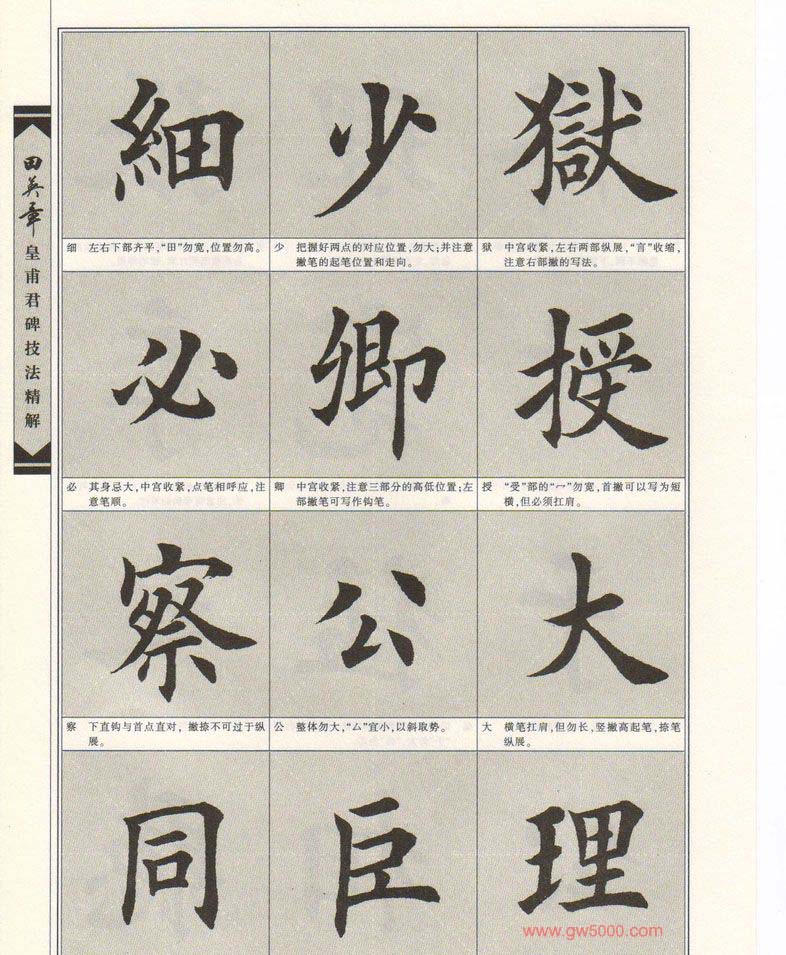 田英章皇甫君碑技法精解
細
少
獄
细 左右下部齐平,“田”勿宽,位置勿高。
少 把握好两点的对应位置,勿大;并注意
撇笔的起笔位置和走向。
獄 中宫收紧,左右两部纵展,“言”收缩,
注意右部撇的写法。
必
卿
授
必 其身忌大,中宫收紧,点笔相呼应,注
意笔顺。
卿 中宫收紧,注意三部分的高低位置;左
部撇笔可写作钩笔。
授 “受”部的“冖”勿宽,首撇可以写为短
横,但必须扛肩。
察
公
大
察 下直钩与首点直对,撇捺不可过于纵
展。
公 整体勿大,“厶”宜小,以斜取势。
大 横笔扛肩,但勿长,竖撇高起笔,捺笔
纵展。
同
臣
理
www.gw5000.com